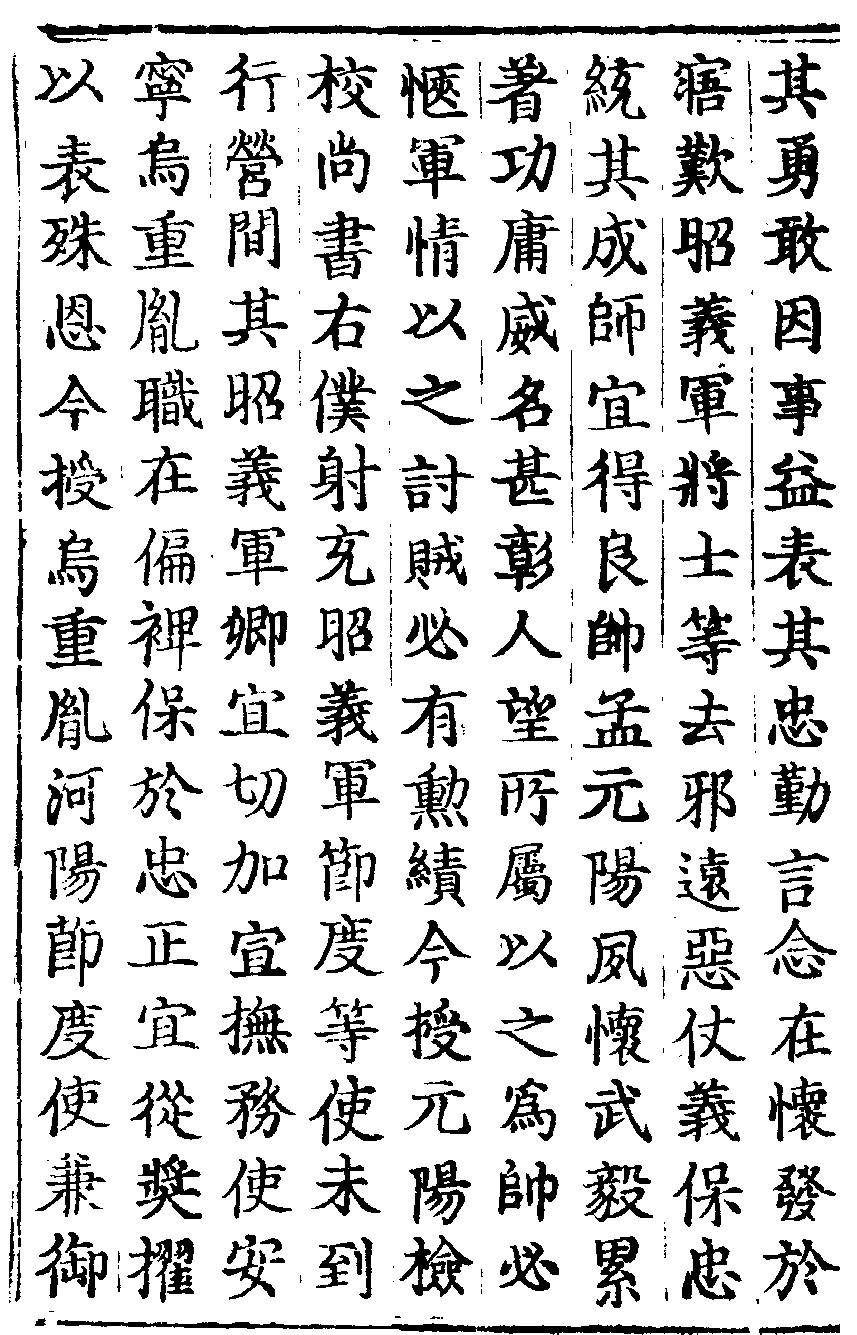 其勇敢因事益表其忠勤言念在懷發於
寤歎昭義軍將士等去邪遠惡仗義保忠
統其成師宜得良帥孟元陽夙懷武毅累
著功庸威名甚彰人望所屬以之爲帥必
愜軍情以之討賊必有勲績今授元陽檢
校尚書右僕射充昭義軍節度等使未到
行營間其昭義軍卿宜切加宣撫務使安
寧烏重胤職在偏裨保於忠正宜從奬擢
以表殊恩今授烏重胤河陽節度使兼御